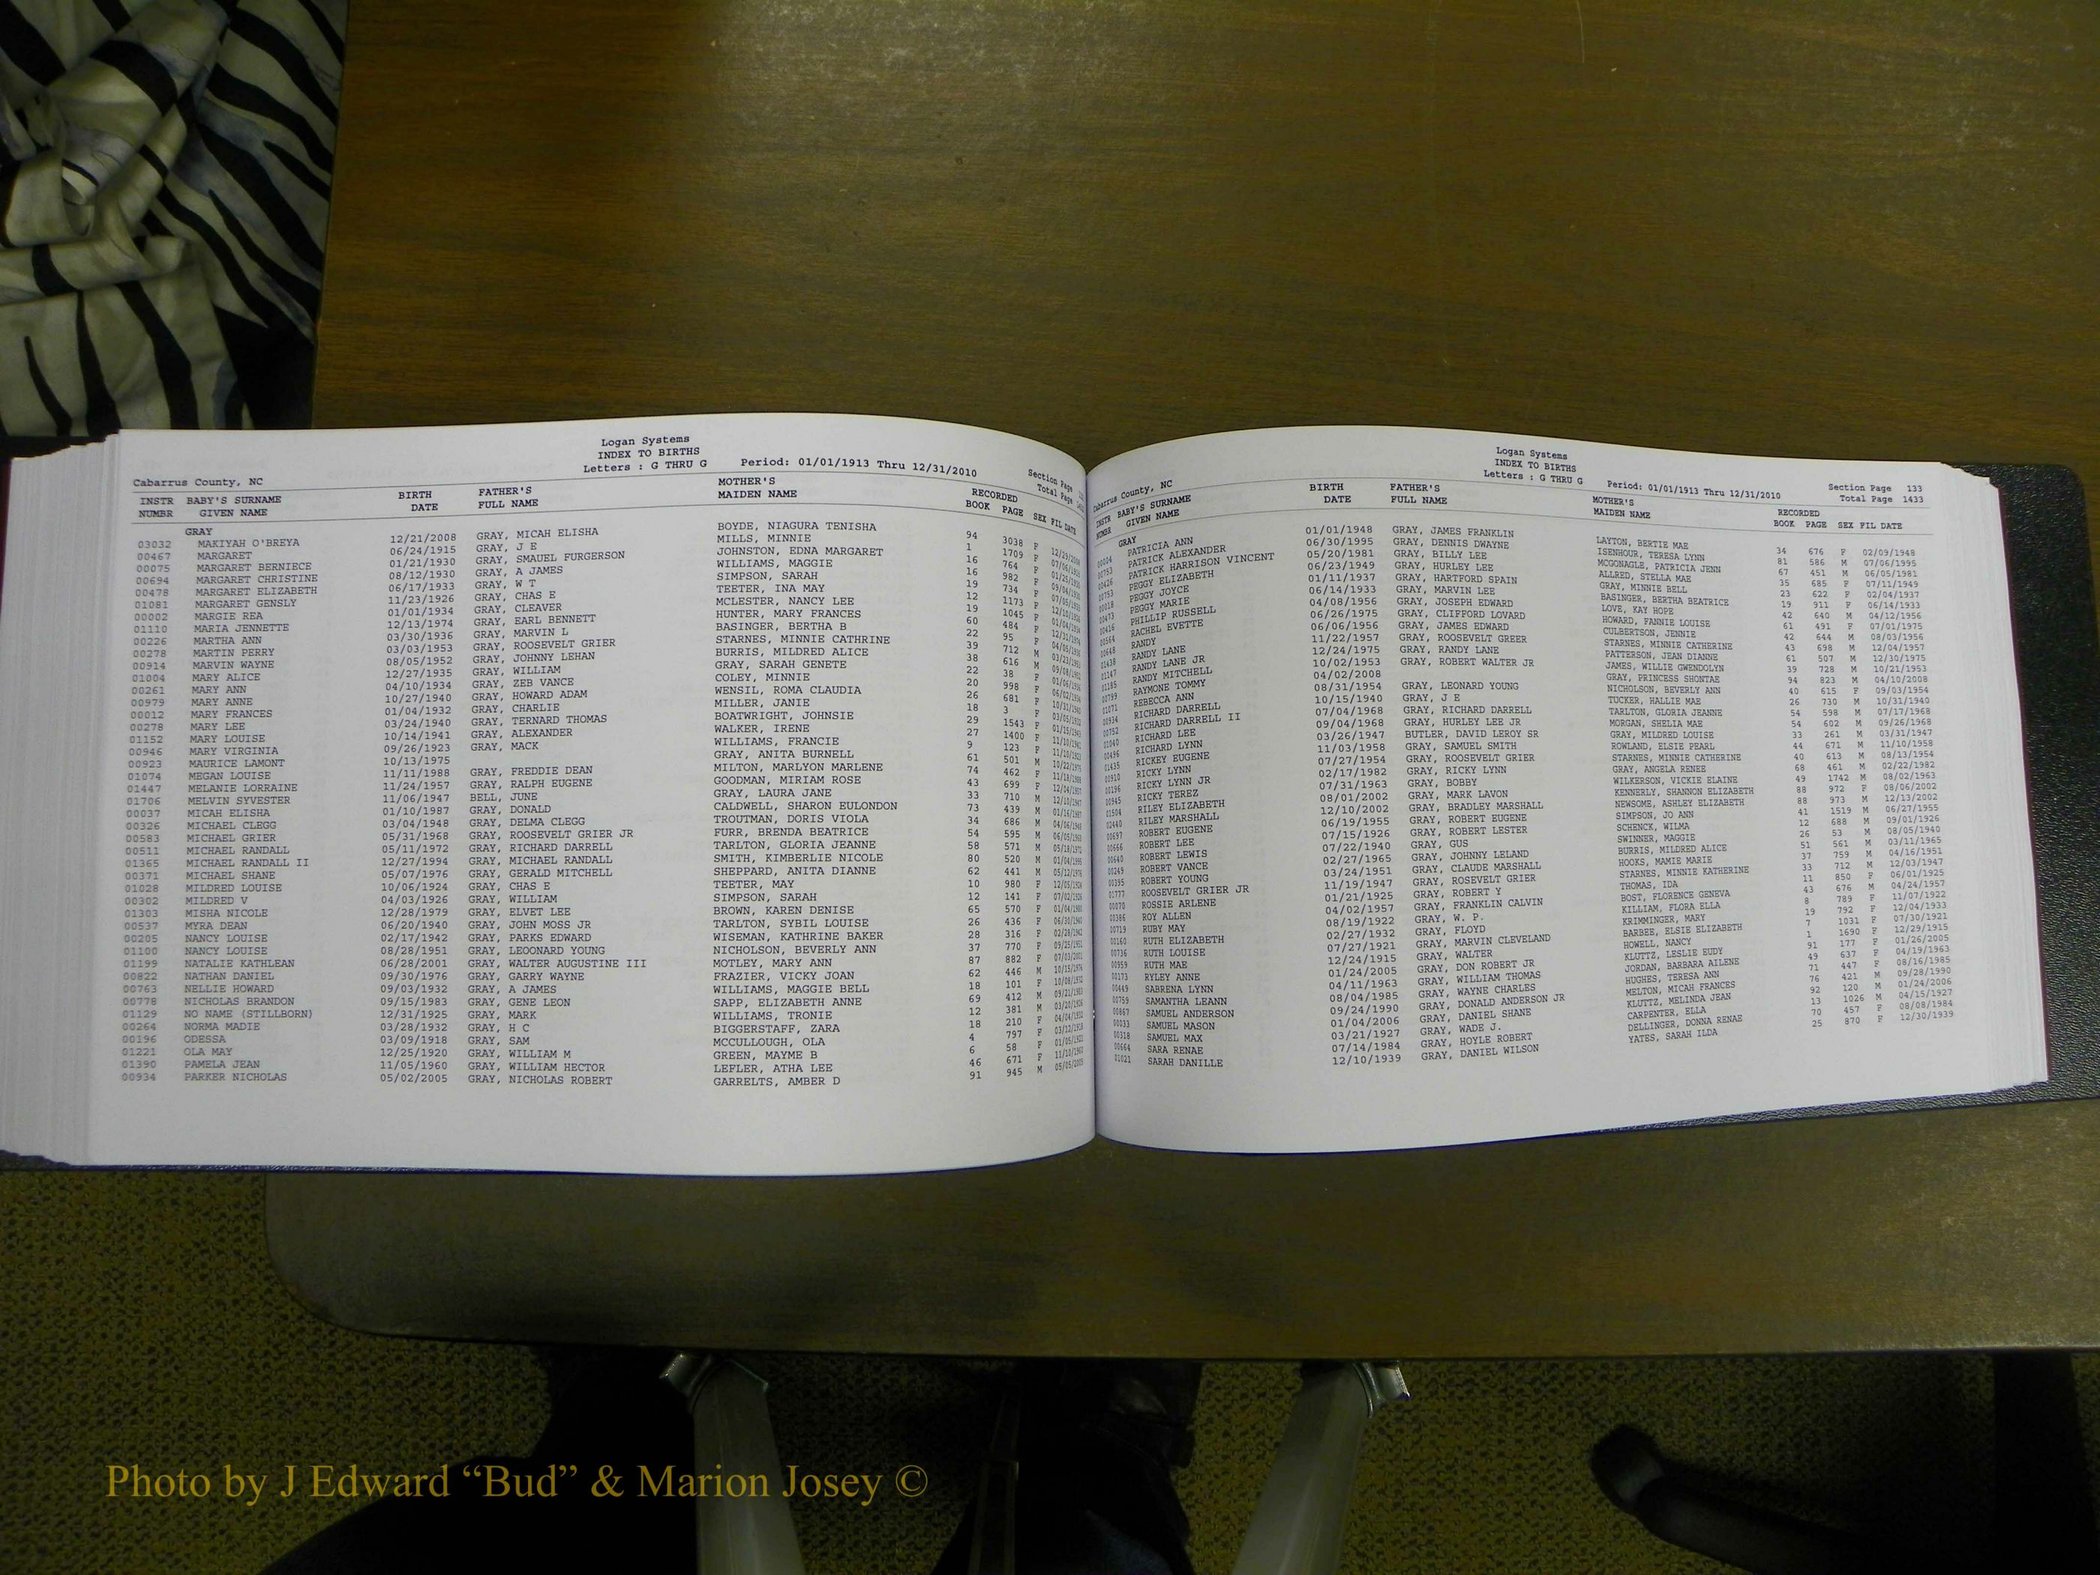 Logan Systems
INDEX TO BIRTHS
Cabarrus County, NC Letters : G THRU G Period: 01/01/1913 Thru 12/31/2010 Section Page
Total Page
INSTR BABY'S SURNAME BIRTH FATHER'S MOTHER'S RECORDED
NUMBR GIVEN NAME DATE FULL NAME MAIDEN NAME BOOK PAGE SEX FIL DATE
GRAY
03032 MAKIYAH O'BREYA 12/21/2008 GRAY, MICAH ELISHA BOYDE, NIAGURA TENISHA 94 3038 F
00467 MARGARET 06/24/1915 GRAY, J E MILLS, MINNIE 1 1709 F
00075 MARGARET BERNIECE 01/21/1930 GRAY, SMAUEL FURGERSON JOHNSTON, EDNA MARGARET 16 764 F
00694 MARGARET CHRISTINE 08/12/1930 GRAY, A JAMES WILLIAMS, MAGGIE 16 982 F
00478 MARGARET ELIZABETH 06/17/1933 GRAY, W T SIMPSON, SARAH 19 734 F
01081 MARGARET GENSLY 11/23/1926 GRAY, CHAS E TEETER, INA MAY 12 1173 F
00002 MARGIE REA 01/01/1934 GRAY, CLEAVER MCLESTER, NANCY LEE 19 1045 F
01110 MARIA JENNETTE 12/13/1974 GRAY, EARL BENNETT HUNTER, MARY FRANCES 60 484 F
00226 MARTHA ANN 03/30/1936 GRAY, MARVIN L BASINGER, BERTHA B 22 95 F
00278 MARTIN PERRY 03/03/1953 GRAY, ROOSEVELT GRIER STARNES, MINNIE CATHRINE 39 712 M
00914 MARVIN WAYNE 08/05/1952 GRAY, JOHNNY LEHAN BURRIS, MILDRED ALICE 38 616 M
01004 MARY ALICE 12/27/1935 GRAY, WILLIAM GRAY, SARAH GENETE 22 38 F
00261 MARY ANN 04/10/1934 GRAY, ZEB VANCE COLEY, MINNIE 20 998 F
00979 MARY ANNE 10/27/1940 GRAY, HOWARD ADAM WENSIL, ROMA CLAUDIA 26 681 F
00012 MARY FRANCES 01/04/1932 GRAY, CHARLIE MILLER, JANIE 18 3 F
00278 MARY LEE 03/24/1940 GRAY, TERNARD THOMAS BOATWRIGHT, JOHNSIE 29 1543 F
01152 MARY LOUISE 10/14/1941 GRAY, ALEXANDER WALKER, IRENE 27 1400 F
00946 MARY VIRGINIA 09/26/1923 GRAY, MACK WILLIAMS, FRANCIE 9 123 F
00923 MAURICE LAMONT 10/13/1975 GRAY, ANITA BURNELL 61 501 M
01074 MEGAN LOUISE 11/11/1988 GRAY, FREDDIE DEAN MILTON, MARLYON MARLENE 74 462 F
01447 MELANIE LORRAINE 11/24/1957 GRAY, RALPH EUGENE GOODMAN, MIRIAM ROSE 43 699 F
01706 MELVIN SYVESTER 11/06/1947 BELL, JUNE GRAY, LAURA JANE 33 710 M
00037 MICAH ELISHA 01/10/1987 GRAY, DONALD CALDWELL, SHARON EULONDON 73 439 M
00326 MICHAEL CLEGG 03/04/1948 GRAY, DELMA CLEGG TROUTMAN, DORIS VIOLA 34 686 M
00583 MICHAEL GRIER 05/31/1968 GRAY, ROOSEVELT GRIER JR FURR, BRENDA BEATRICE 54 595 M
00511 MICHAEL RANDALL 05/11/1972 GRAY, RICHARD DARRELL TARLTON, GLORIA JEANNE 58 571 M
01365 MICHAEL RANDALL II 12/27/1994 GRAY, MICHAEL RANDALL SMITH, KIMBERLIE NICOLE 80 520 M
00371 MICHAEL SHANE 05/07/1976 GRAY, GERALD MITCHELL SHEPPARD, ANITA DIANNE 62 441 M
01028 MILDRED LOUISE 10/06/1924 GRAY, CHAS E TEETER, MAY 10 980 F
00302 MILDRED V 04/03/1926 GRAY, WILLIAM SIMPSON, SARAH 12 141 F
01303 MISHA NICOLE 12/28/1979 GRAY, ELVET LEE BROWN, KAREN DENISE 65 570 F
00537 MYRA DEAN 06/20/1940 GRAY, JOHN MOSS JR TARLTON, SYBIL LOUISE 26 436 F
00205 NANCY LOUISE 02/17/1942 GRAY, PARKS EDWARD WISEMAN, KATHRINE BAKER 28 316 F
01100 NANCY LOUISE 08/28/1951 GRAY, LEOONARD YOUNG NICHOLSON, BEVERLY ANN 37 770 F
01199 NATALIE KATHLEAN 06/28/2001 GRAY, WALTER AUGUSTINE III MOTLEY, MARY ANN 87 882 F
00822 NATHAN DANIEL 09/30/1976 GRAY, GARRY WAYNE FRAZIER, VICKY JOAN 62 446 M
00763 NELLIE HOWARD 09/03/1932 GRAY, A JAMES WILLIAMS, MAGGIE BELL 18 101 F
00778 NICHOLAS BRANDON 09/15/1983 GRAY, GENE LEON SAPP, ELIZABETH ANNE 69 412 M
01129 NO NAME (STILLBORN) 12/31/1925 GRAY, MARK WILLIAMS, TRONIE 12 381 M
00264 NORMA MADIE 03/28/1932 GRAY, H C BIGGERSTAFF, ZARA 18 210 F
00196 ODESSA 03/09/1918 GRAY, SAM MCCULLOUGH, OLA 4 797 F
01221 OLA MAY 12/25/1920 GRAY, WILLIAM M GREEN, MAYME B 6 58 F
01390 PAMELA JEAN 11/05/1960 GRAY, WILLIAM HECTOR LEFLER, ATHA LEE 46 671 F
00934 PARKER NICHOLAS 05/02/2005 GRAY, NICHOLAS ROBERT GARRELTS, AMBER D 91 945 M 05/05/2005
Logan Systems
INDEX TO BIRTHS
Cabarrus County, NC Letters : G THRU G Period: 01/01/1913 Thru 12/31/2010 Section Page 133
Total Page 1433
INSTR BABY'S SURNAME BIRTH FATHER'S MOTHER'S RECORDED
NUMBR GIVEN NAME DATE FULL NAME MAIDEN NAME BOOK PAGE SEX FIL DATE
GRAY
PATRICIA ANN 01/01/1948 GRAY, JAMES FRANKLIN LAYTON, BERTIE MAE 34 676 F 02/09/1948
PATRICK ALEXANDER 06/30/1995 GRAY, DENNIS DWAYNE ISENHOUR, TERESA LYNN 81 586 M 07/06/1995
PATRICK HARRISON VINCENT 05/20/1981 GRAY, BILLY LEE MCGONAGLE, PATRICIA JENN 67 451 M 06/05/1981
PEGGY ELIZABETH 06/23/1949 GRAY, HURLEY LEE ALLRED, STELLA MAE 35 685 F 07/11/1949
PEGGY JOYCE 01/11/1937 GRAY, HARTFORD SPAIN GRAY, MINNIE BELL 23 622 F 02/04/1937
PEGGY MARIE 06/14/1933 GRAY, MARVIN LEE BASINGER, BERTHA BEATRICE 19 911 F 06/14/1933
PHILLIP RUSSELL 04/08/1956 GRAY, JOSEPH EDWARD LOVE, KAY HOPE 42 640 M 04/12/1956
RACHEL EVETTE 06/26/1975 GRAY, CLIFFORD LOVARD HOWARD, FANNIE LOUISE 61 491 F 07/01/1975
RANDY 06/06/1956 GRAY, JAMES EDWARD CULBERTSON, JENNIE 42 644 M 08/03/1956
RANDY LANE 11/22/1957 GRAY, ROOSEVELT GREER STARNES, MINNIE CATHERINE 43 698 M 12/04/1957
RANDY LANE JR 12/24/1975 GRAY, RANDY LANE PATTERSON, JEAN DIANNE 61 507 M 12/30/1975
RANDY MITCHELL 10/02/1953 GRAY, ROBERT WALTER JR JAMES, WILLIE GWENDOLYN 39 728 M 10/21/1953
RAYMONE TOMMY 04/02/2008 GRAY, PRINCESS SHONTAE 94 823 M 04/10/2008
REBECCA ANN 08/31/1954 GRAY, LEONARD YOUNG NICHOLSON, BEVERLY ANN 40 615 F 09/03/1954
RICHARD DARRELL 10/15/1940 GRAY, J E TUCKER, HALLIE MAE 26 730 M 10/31/1940
RICHARD DARRELL II 07/04/1968 GRAY, RICHARD DARRELL TARLTON, GLORIA JEANNE 54 598 M 07/17/1968
RICHARD LEE 09/04/1968 GRAY, HURLEY LEE JR MORGAN, SHELIA MAE 54 602 M 09/26/1968
RICHARD LYNN 03/26/1947 BUTLER, DAVID LEROY SR GRAY, MILDRED LOUISE 33 261 M 03/31/1947
RICKEY EUGENE 11/03/1958 GRAY, SAMUEL SMITH ROWLAND, ELSIE PEARL 44 671 M 11/10/1958
RICKY LYNN 07/27/1954 GRAY, ROOSEVELT GRIER STARNES, MINNIE CATHERINE 40 613 M 08/13/1954
RICKY LYNN JR 02/17/1982 GRAY, RICKY LYNN GRAY, ANGELA RENEE 68 461 M 02/22/1982
RICKY TEREZ 07/31/1963 GRAY, BOBBY WILKERSON, VICKIE ELAINE 49 1742 M 08/02/1963
RILEY ELIZABETH 08/01/2002 GRAY, MARK LAVON KENNERLY, SHANNON ELIZABETH 88 972 F 08/06/2002
RILEY MARSHALL 12/10/2002 GRAY, BRADLEY MARSHALL NEWSOME, ASHLEY ELIZABETH 88 973 M 12/13/2002
ROBERT EUGENE 06/19/1955 GRAY, ROBERT EUGENE SIMPSON, JO ANN 41 1519 M 06/27/1955
ROBERT LEE 07/15/1926 GRAY, ROBERT LESTER SCHENCK, WILMA 12 688 M 09/01/1926
ROBERT LEWIS 07/22/1940 GRAY, GUS SWINNER, MAGGIE 26 53 M 08/05/1940
ROBERT VANCE 02/27/1965 GRAY, JOHNNY LELAND BURRIS, MILDRED ALICE 51 561 M 03/11/1965
ROBERT YOUNG 03/24/1951 GRAY, CLAUDE MARSHALL HOOKS, MAMIE MARIE 37 759 M 04/16/1951
ROOSEVELT GRIER JR 11/19/1947 GRAY, ROSEVELT GRIER STARNES, MINNIE KATHERINE 33 712 M 12/03/1947
ROSSIE ARLENE 01/21/1925 GRAY, ROBERT Y THOMAS, IDA 11 850 F 06/01/1925
ROY ALLEN 04/02/1957 GRAY, FRANKLIN CALVIN BOST, FLORENCE GENEVA 43 676 M 04/24/1957
RUBY MAY 08/19/1922 GRAY, W. P. KILLIAM, FLORA ELLA 8 789 F 11/07/1922
RUTH ELIZABETH 02/27/1932 GRAY, FLOYD KRIMMINGER, MARY 19 792 F 12/04/1933
RUTH LOUISE 07/27/1921 GRAY, MARVIN CLEVELAND BARBEE, ELSIE ELIZABETH 7 1031 F 07/30/1921
RUTH MAE 12/24/1915 GRAY, WALTER HOWELL, NANCY 1 1690 F 12/29/1915
RYLEY ANNE 01/24/2005 GRAY, DON ROBERT JR KLUTTZ, LESLIE EUDY 91 177 F 01/26/2005
SABRENA LYNN 04/11/1963 GRAY, WILLIAM THOMAS JORDAN, BARBARA AILENE 49 637 F 04/19/1963
SAMANTHA LEANN 08/04/1985 GRAY, WAYNE CHARLES HUGHES, TERESA ANN 71 447 F 08/16/1985
SAMUEL ANDERSON 09/24/1990 GRAY, DONALD ANDERSON JR MELTON, MICAH FRANCES 76 421 M 09/28/1990
SAMUEL MASON 01/04/2006 GRAY, DANIEL SHANE KLUTTZ, MELINDA JEAN 92 120 M 01/24/2006
SAMUEL MAX 03/21/1927 GRAY, WADE J. CARPENTER, ELLA 13 1026 M 04/15/1927
SARA RENAE 07/14/1984 GRAY, HOYLE ROBERT DELLINGER, DONNA RENAE 70 457 F 08/08/1984
01021 SARAH DANILLE 12/10/1939 GRAY, DANIEL WILSON YATES, SARAH ILDA 25 870 F 12/30/1939
Photo by J Edward “Bud” & Marion Josey ©